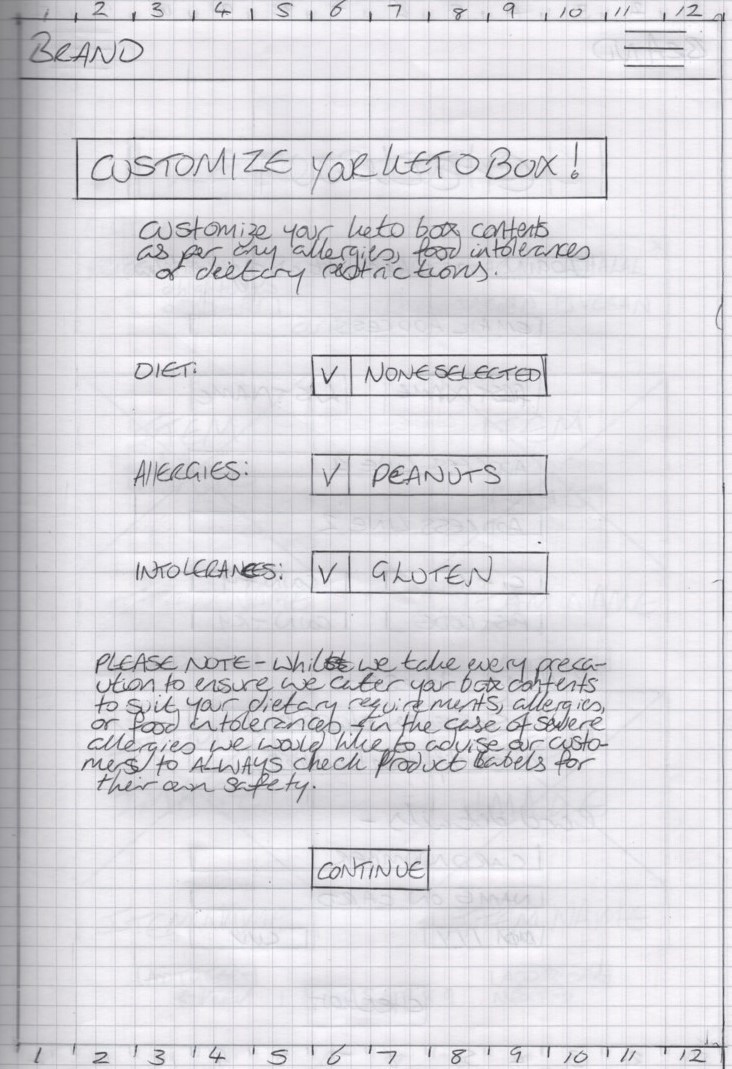 1 2 3 4 5 6 7 8 9 10 11 12
BRAND
CUSTOMIZE YOUR KETO BOX!
Customize your keto box contents
as per any allergies, food intolerances
or dietary restrictions.
DIET: V NONE SELECTED
ALLERGIES: V PEANUTS
INTOLERANCES: V GLUTEN
PLEASE NOTE - Whilst we take every preca-
ution to ensure we cater your box contents
to suit your dietary requirements, allergies,
or food intolerances, in the case of severe
allergies we would like to advise our custo-
mers to ALWAYS check Product Labels for
their own safety.
CONTINUE
1 2 3 4 5 6 7 8 9 10 11 12